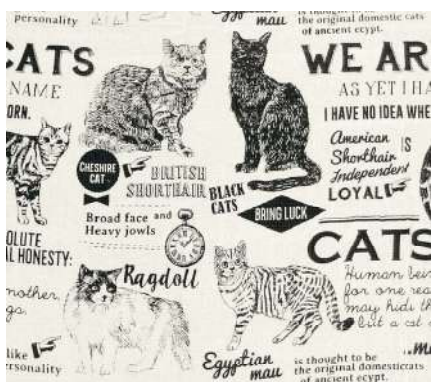 personality
Egyptian
mau
the original domestic cats
of ancient ecypt.
CATS
WE AR
NAME
AS YET I HA
ORN.
I HAVE NO IDEA WHE
American
Shorthair IS
Independent
LOYAL
CHESHIRE
CAT
BRITISH
SHORTHAIR
BLACK
CATS
BRING LUCK
Broad face and
Heavy jowls
OLUTE
AL HONESTY:
CATS
Ragdoll
Human bei
for one rea
may hidi th
but a cat
mother,
gs.
like
rsonality
Egyptian
mau
is thought to be
the original domesticcats
of ancient ecypt.